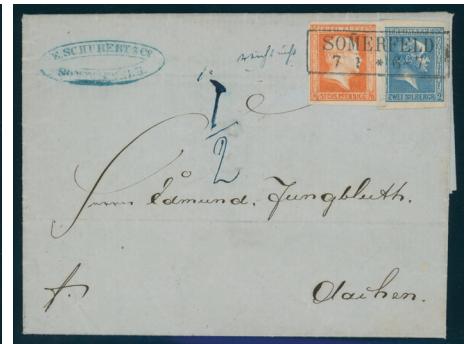 E. SCHUBERT & Co
SOMMERFELD
SECHS PFENNIGE
ZWEI SILBERGR.
2
1/2
Herrn Edmund. Jungbluth.
fr.
Aachen.